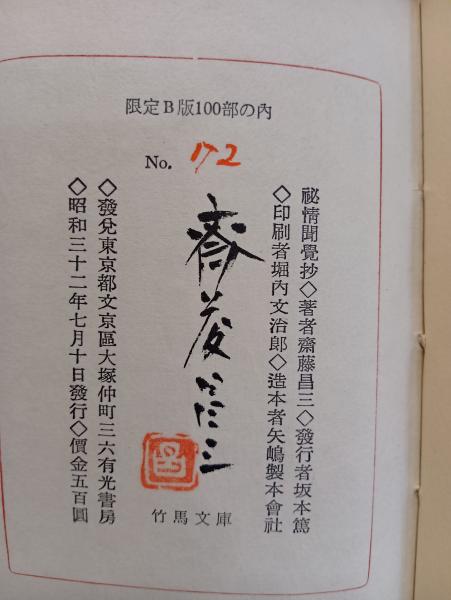 限定B版100部の內
No. 172
祕情聞覺抄◇著者齋藤昌三◇發行者坂本篤
◇印刷者堀內文治郎◇造本者矢嶋製本會社
齋藤昌三
◇發兌東京都文京區大塚仲町三六有光書房
◇昭和三十二年七月十日發行◇價金五百圓
竹馬文庫